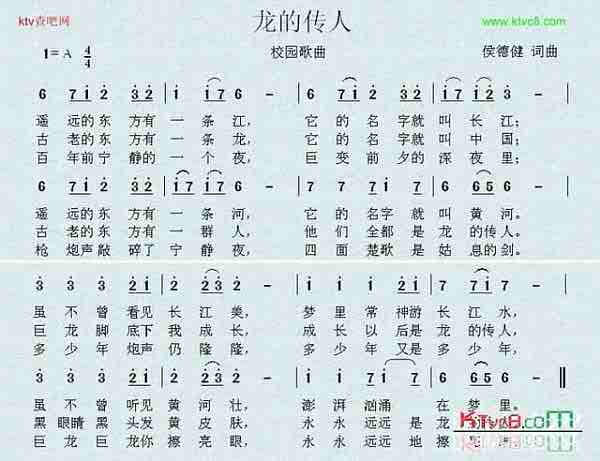 ktv查吧网
龙的传人
www.ktvc8.com
1=A 4/4
校园歌曲
侯德健 词曲
6 7 1 2 3 2 | 1 1 7 6 - | 1 7 1 2 3 2 | 3 2 3 - |
遥 远的 东 方有 一 条 江, 它 的 名 字就 叫 长 江;
古 老的 东 方有 一 条 龙, 它 的 名 字就 叫 中 国;
百 年前 宁 静的 一 个 夜, 巨 变 前 夕的 深 夜 里;
6 7 1 2 3 2 | 1 7 1 7 6 - | 1 7 7 7 1 7 | 6 6 5 6 - |
遥 远的 东 方有 一 条 河, 它 的 名字 就 叫 黄 河。
古 老的 东 方有 一 群 人, 他 们 全都 是 龙 的 传 人。
枪 炮声 敲 碎了 宁 静 夜, 四 面 楚歌 是 姑 息 的 剑。
3 3 3 2 1 | 2 2 3 2 - | 1 1 1 2 1 7 1 2 3 - |
虽 不 曾 看见 长 江 美, 梦 里 常 神游 长 江 水,
巨 龙 脚 底下 我 成 长, 成 长 以 后是 龙 的 传 人,
多 少 年 炮声 仍 隆 隆, 多 少 年 又是 多 少 年,
3 3 3 2 1 | 2 2 3 2 -
虽 不 曾 听见 黄 河 壮, 澎 湃 汹涌 在 梦 里。
黑 眼睛 黑 头发 黄 皮 肤, 永 永 远远 是 龙
巨 龙 巨 龙你 擦 亮 眼, 永 永 远 远 地 擦
Ktvc8.com